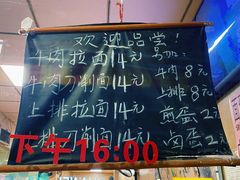 欢迎品尝!
牛肉拉面14元
牛肉刀削面14元
上排拉面14元
排刀削面14元
另加:
牛肉8元
上排8元
煎蛋2元
卤蛋2元
下午16:00